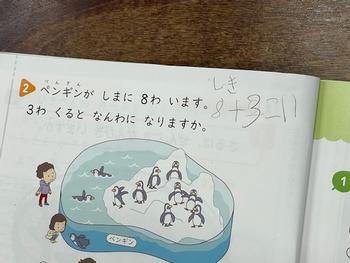 ぺんぎん
2 ペンギンが しまに 8わ います。
3わ くると なんわに なりますか。
しき
8+3=11
ペンギン
1